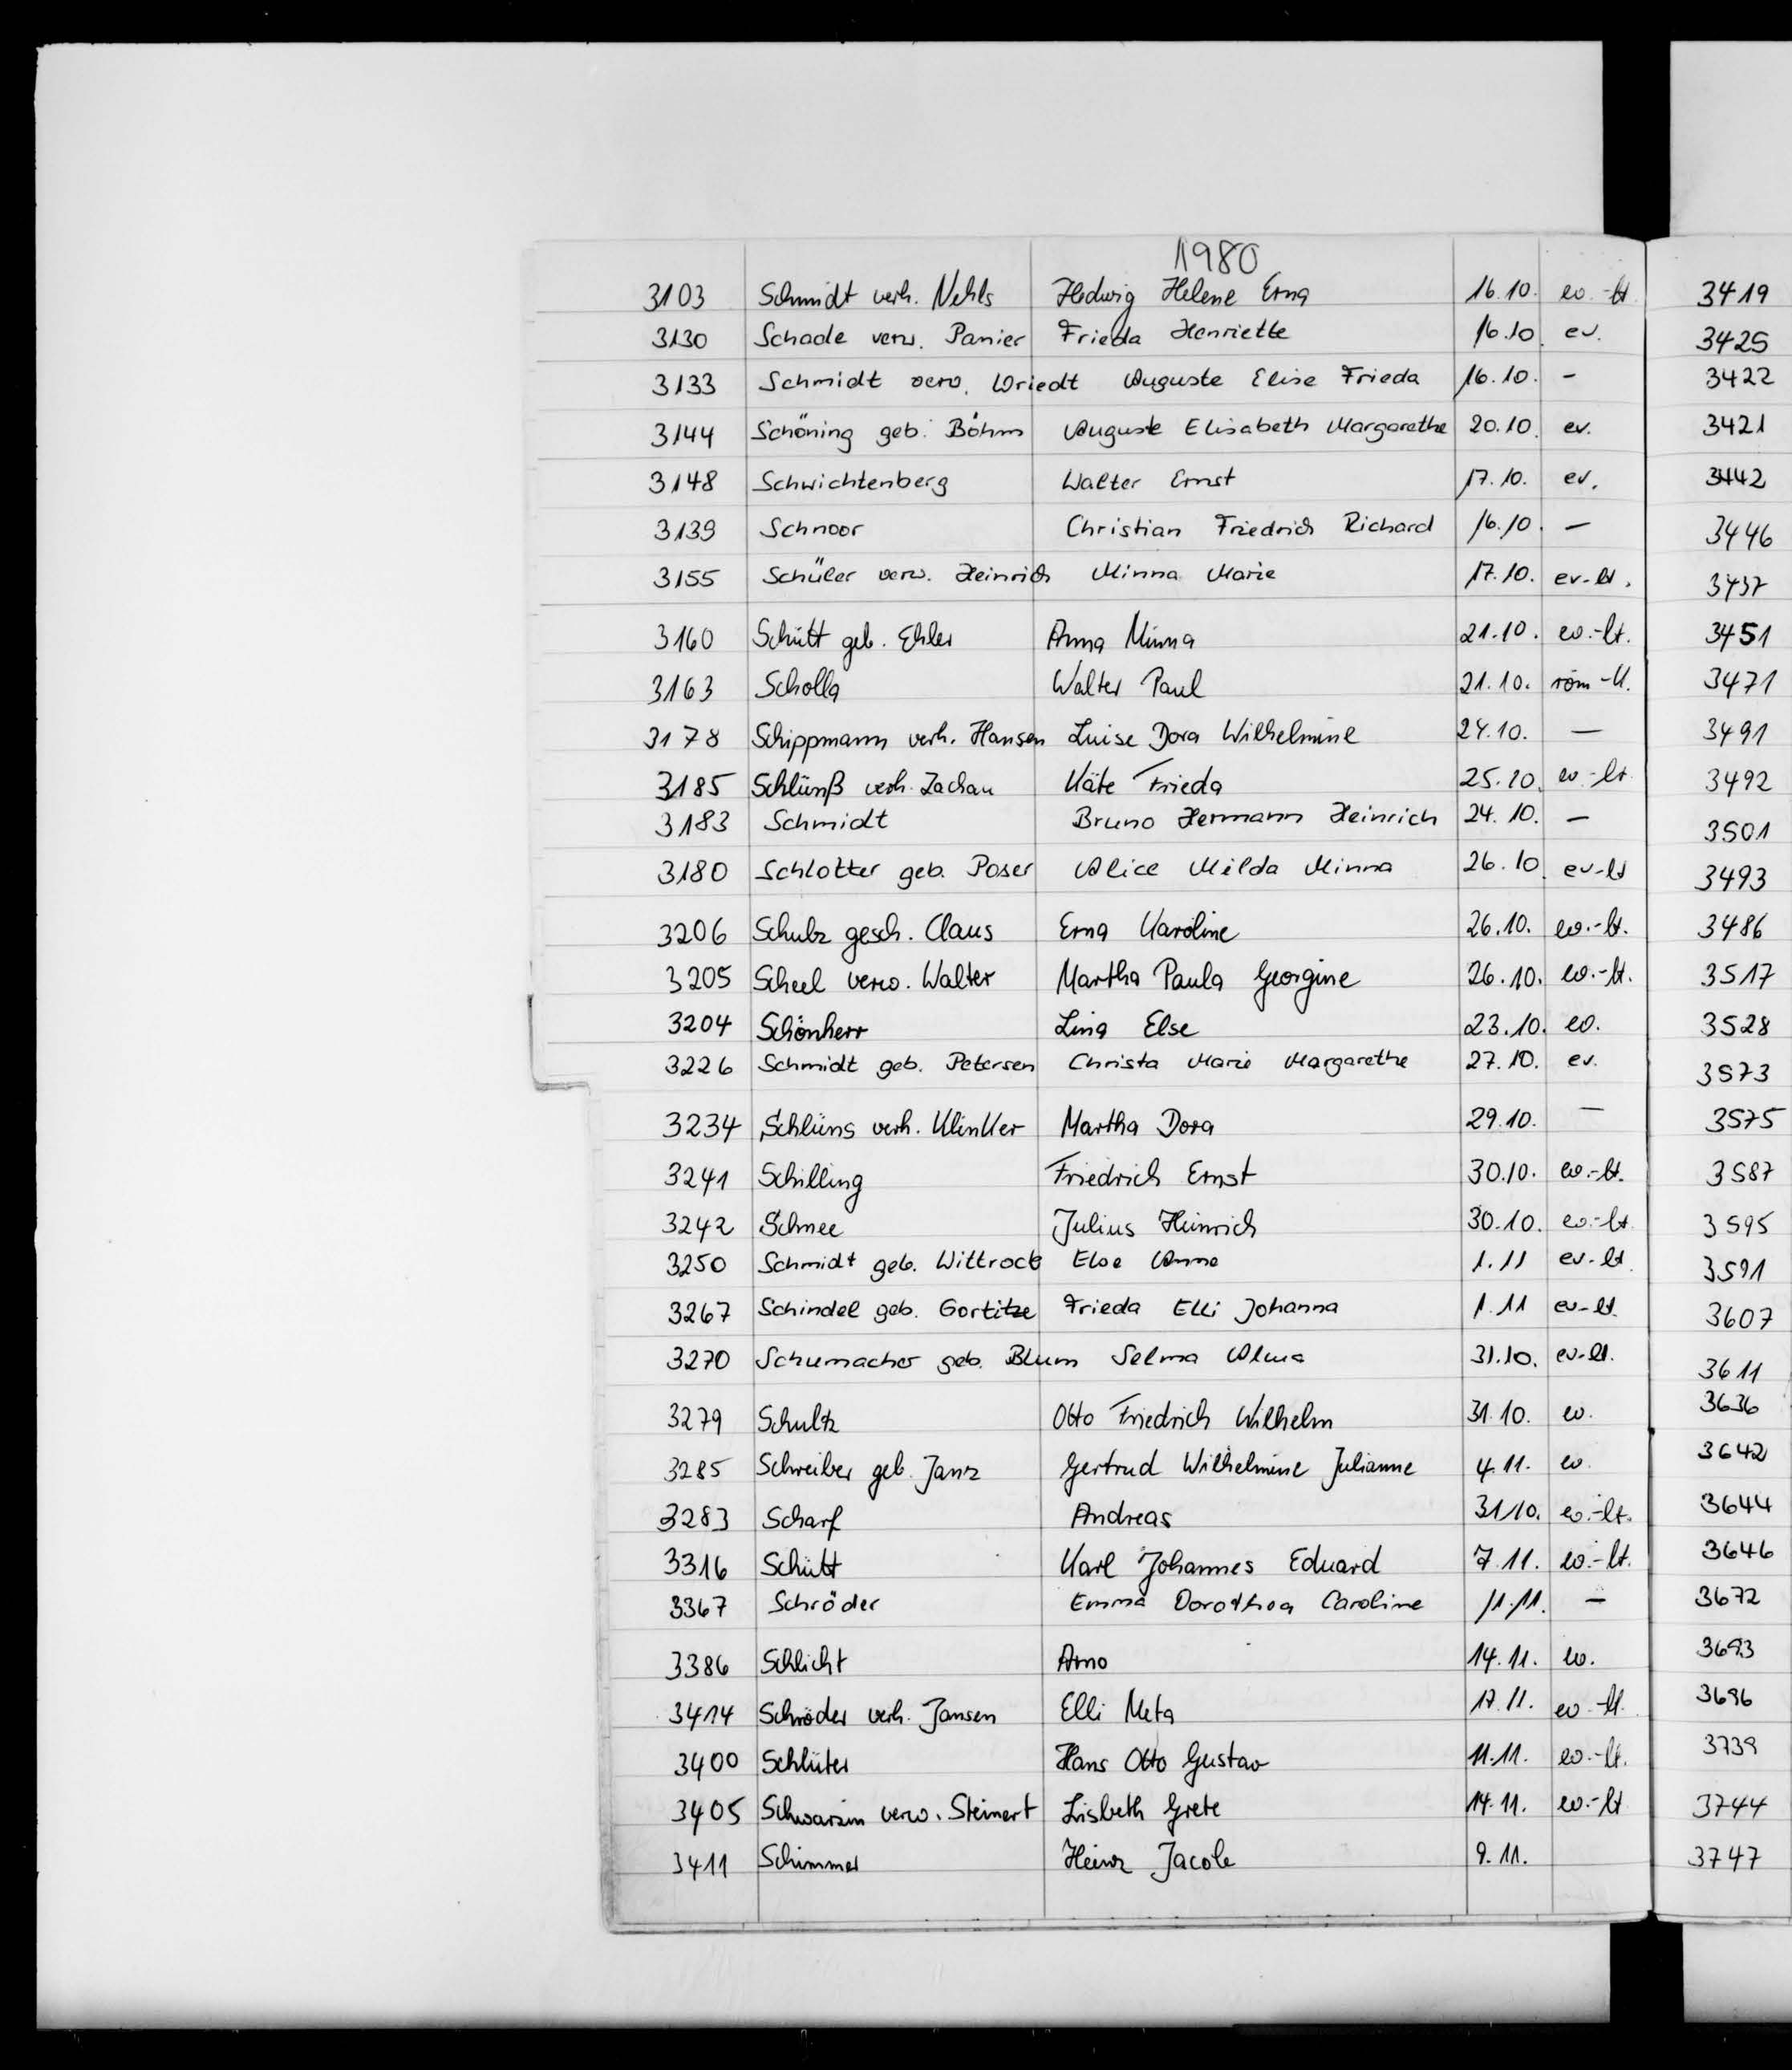 1980
3103 Schmidt verh. Nehls Hedwig Helene Erna 16.10. ev.-lt. 3419
3130 Schade verw. Panier Frieda Henriette 16.10. ev. 3425
3133 Schmidt verw. Wriedt Auguste Elise Frieda 16.10. - 3422
3144 Schöning geb. Böhm Auguste Elisabeth Margarethe 20.10. ev. 3421
3148 Schwichtenberg Walter Ernst 17.10. ev. 3442
3139 Schnoor Christian Friedrich Richard 16.10. — 3446
3155 Schüler verw. Heinrich Minna Marie 17.10. ev-lt. 3437
3160 Schütt geb. Ehler Anna Minna 21.10. ev.-lt. 3451
3163 Scholla Walter Paul 21.10. röm-k. 3471
3178 Schippmann verh. Hansen Luise Dora Wilhelmine 24.10. — 3491
3185 Schlünß verh. Zachau Käte Frieda 25.10. ev-lt. 3492
3183 Schmidt Bruno Hermann Heinrich 24.10. — 3501
3180 Schlotter geb. Poser Alice Milda Minna 26.10. ev-lt 3493
3206 Schulz gesch. Claus Erna Karoline 26.10. ev.-lt. 3486
3205 Scheel verw. Walter Martha Paula Georgine 26.10. ev.-lt. 3517
3204 Schönherr Lina Else 23.10. ev. 3528
3226 Schmidt geb. Petersen Christa Marie Margarethe 27.10. ev. 3573
3234 Schlüns verh. Klinker Martha Dora 29.10. — 3575
3241 Schilling Friedrich Ernst 30.10. ev.-lt. 3587
3242 Schnee Julius Heinrich 30.10. ev.-lt 3595
3250 Schmidt geb. Wittrock Else Anna 1.11 ev-lt. 3591
3267 Schindel geb. Gortitze Frieda Elli Johanna 1.11 ev-lt. 3607
3270 Schumacher geb. Blum Selma Alma 31.10. ev-lt. 3611
3279 Schultz Otto Friedrich Wilhelm 31.10. ev. 3636
3285 Schreiber geb. Janz Gertrud Wilhelmine Julianne 4.11. ev. 3642
3283 Scharf Andreas 31.10. ev.-lt. 3644
3316 Schütt Karl Johannes Eduard 7.11. ev.-lt. 3646
3367 Schröder Emma Dorothea Caroline 11.11. — 3672
3386 Schlicht Arno 14.11. ev. 3693
3414 Schröder verh. Jansen Elli Meta 17.11. ev-lt. 3696
3400 Schlüter Hans Otto Gustav 11.11. ev.-lt. 3739
3405 Schwarzin verw. Steinert Lisbeth Grete 14.11. ev.-lt 3744
3411 Schimmel Heinz Jacob 9.11. 3747